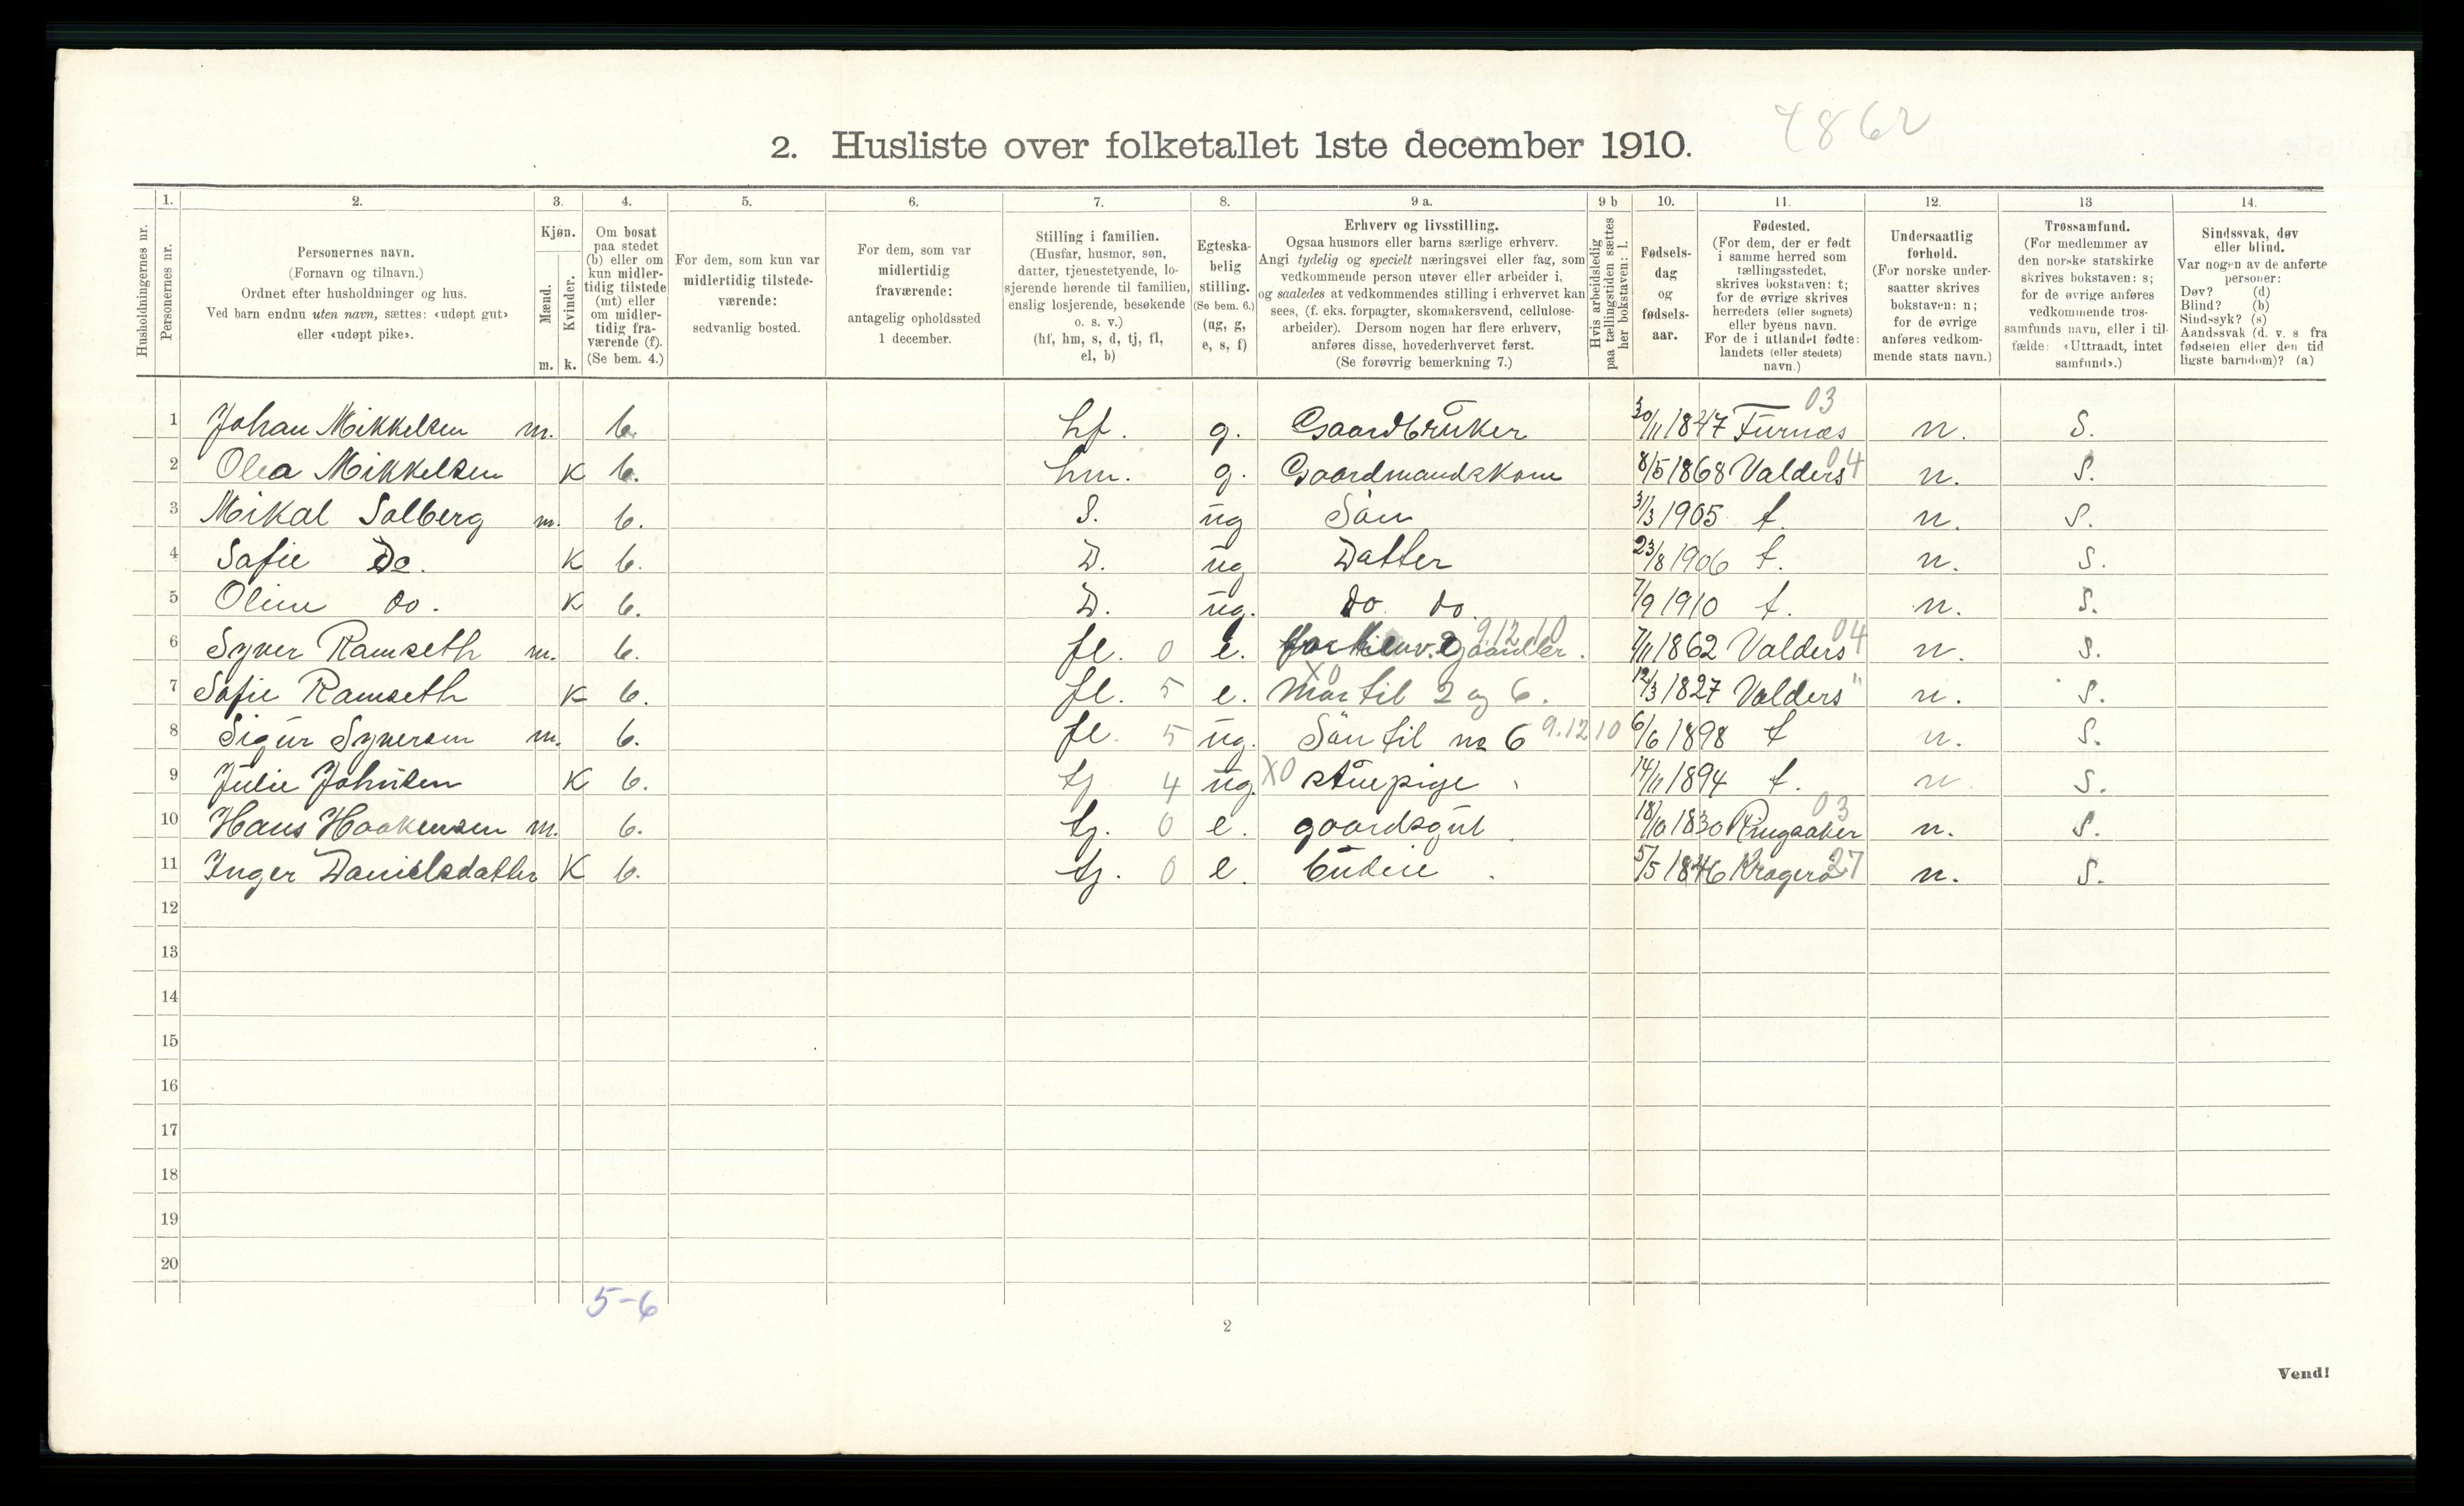 4862
2. Husliste over folketallet 1ste december 1910.
Husholdningernes nr.
1. Personernes nr.
2. Personernes navn.
(Fornavn og tilnavn.)
Ordnet efter husholdninger og hus.
Ved barn endnu uten navn, sættes: «udøpt gut»
eller «udøpt pike».
3. Kjøn.
Mænd. m.
Kvinder. k.
4. Om bosat
paa stedet
(b) eller om
kun midler-
tidig tilstede
(mt) eller
om midler-
tidig fra-
værende (f).
(Se bem. 4.)
5. For dem, som kun var
midlertidig tilstede-
værende:
sedvanlig bosted.
6. For dem, som var
midlertidig
fraværende:
antagelig opholdssted
1 december.
7. Stilling i familien.
(Husfar, husmor, søn,
datter, tjenestetyende, lo-
sjerende hørende til familien,
enslig losjerende, besøkende
o. s. v.)
(hf, hm, s, d, tj, fl,
el, b)
8. Egteska-
belig
stilling.
(Se bem. 6.)
(ug, g,
e, s, f)
9 a. Erhverv og livsstilling.
Ogsaa husmors eller barns særlige erhverv.
Angi tydelig og specielt næringsvei eller fag, som
vedkommende person utøver eller arbeider i,
og saaledes at vedkommendes stilling i erhvervet kan
sees, (f. eks. forpagter, skomakersvend, cellulose-
arbeider). Dersom nogen har flere erhverv,
anføres disse, hovederhvervet først.
(Se forøvrig bemerkning 7.)
9 b Hvis arbeidsledig
paa tællingstiden sættes
her bokstaven: l.
10. Fødsels-
dag
og
fødsels-
aar.
11. Fødested.
(For dem, der er født
i samme herred som
tællingsstedet,
skrives bokstaven: t;
for de øvrige skrives
herredets (eller sognets)
eller byens navn.
For de i utlandet fødte:
landets (eller stedets)
navn.)
12. Undersaatlig
forhold.
(For norske under-
saatter skrives
bokstaven: n;
for de øvrige
anføres vedkom-
mende stats navn.)
13 Trossamfund.
(For medlemmer av
den norske statskirke
skrives bokstaven: s;
for de øvrige anføres
vedkommende tros-
samfunds navn, eller i til-
fælde: «Uttraadt, intet
samfund».)
14. Sindssvak, døv
eller blind.
Var nogen av de anførte
personer:
Døv? (d)
Blind? (b)
Sindssyk? (s)
Aandssvak (d. v. s fra
fødselen eller den tid
ligste barndom)? (a)
1 Johan Mikkelsen m. b. hf. g. Gaardbruker 30/11 1847 Furnæs 03 n. S.
2 Olea Mikkelsen K b. hm. g. Gaardmandskone 8/5 1868 Valders 04 n. S.
3 Mikal Solberg m. b. S. ug Sön 31/3 1905 t. n. S.
4 Safie Do. K b. D. ug Datter 23/8 1906 t. n. S.
5 Oline do. K b. D. ug. do do 7/9 1910 t. n. S.
6 Syver Ramseth m. b. fl. 0 e. 9.12.10 7/11 1862 Valders 04 n. S.
7 Safie Ramseth K b. fl. 5 e. X0 Mor til 2 og 6. 12/3 1827 Valders " n. S.
8 Sigur Syversen m. b. fl. 5 ug. Sön til no 6 9.12 10 6/6 1898 t n. S.
9 Julie Johnsen K b. tj 4 ug. X0 stuepige 14/11 1894 t. n S.
10 Hans Haakensen m. b. tj. 0 e. gaardsgut 18/10 1830 Ringsaker 03 n. S.
11 Inger Danielsdatter K b. tj. 0 e. budeie 5/5 1846 Kragerø 27 n. S.
12
13
14
15
16
17
18
19
20
5-6
2
Vend!